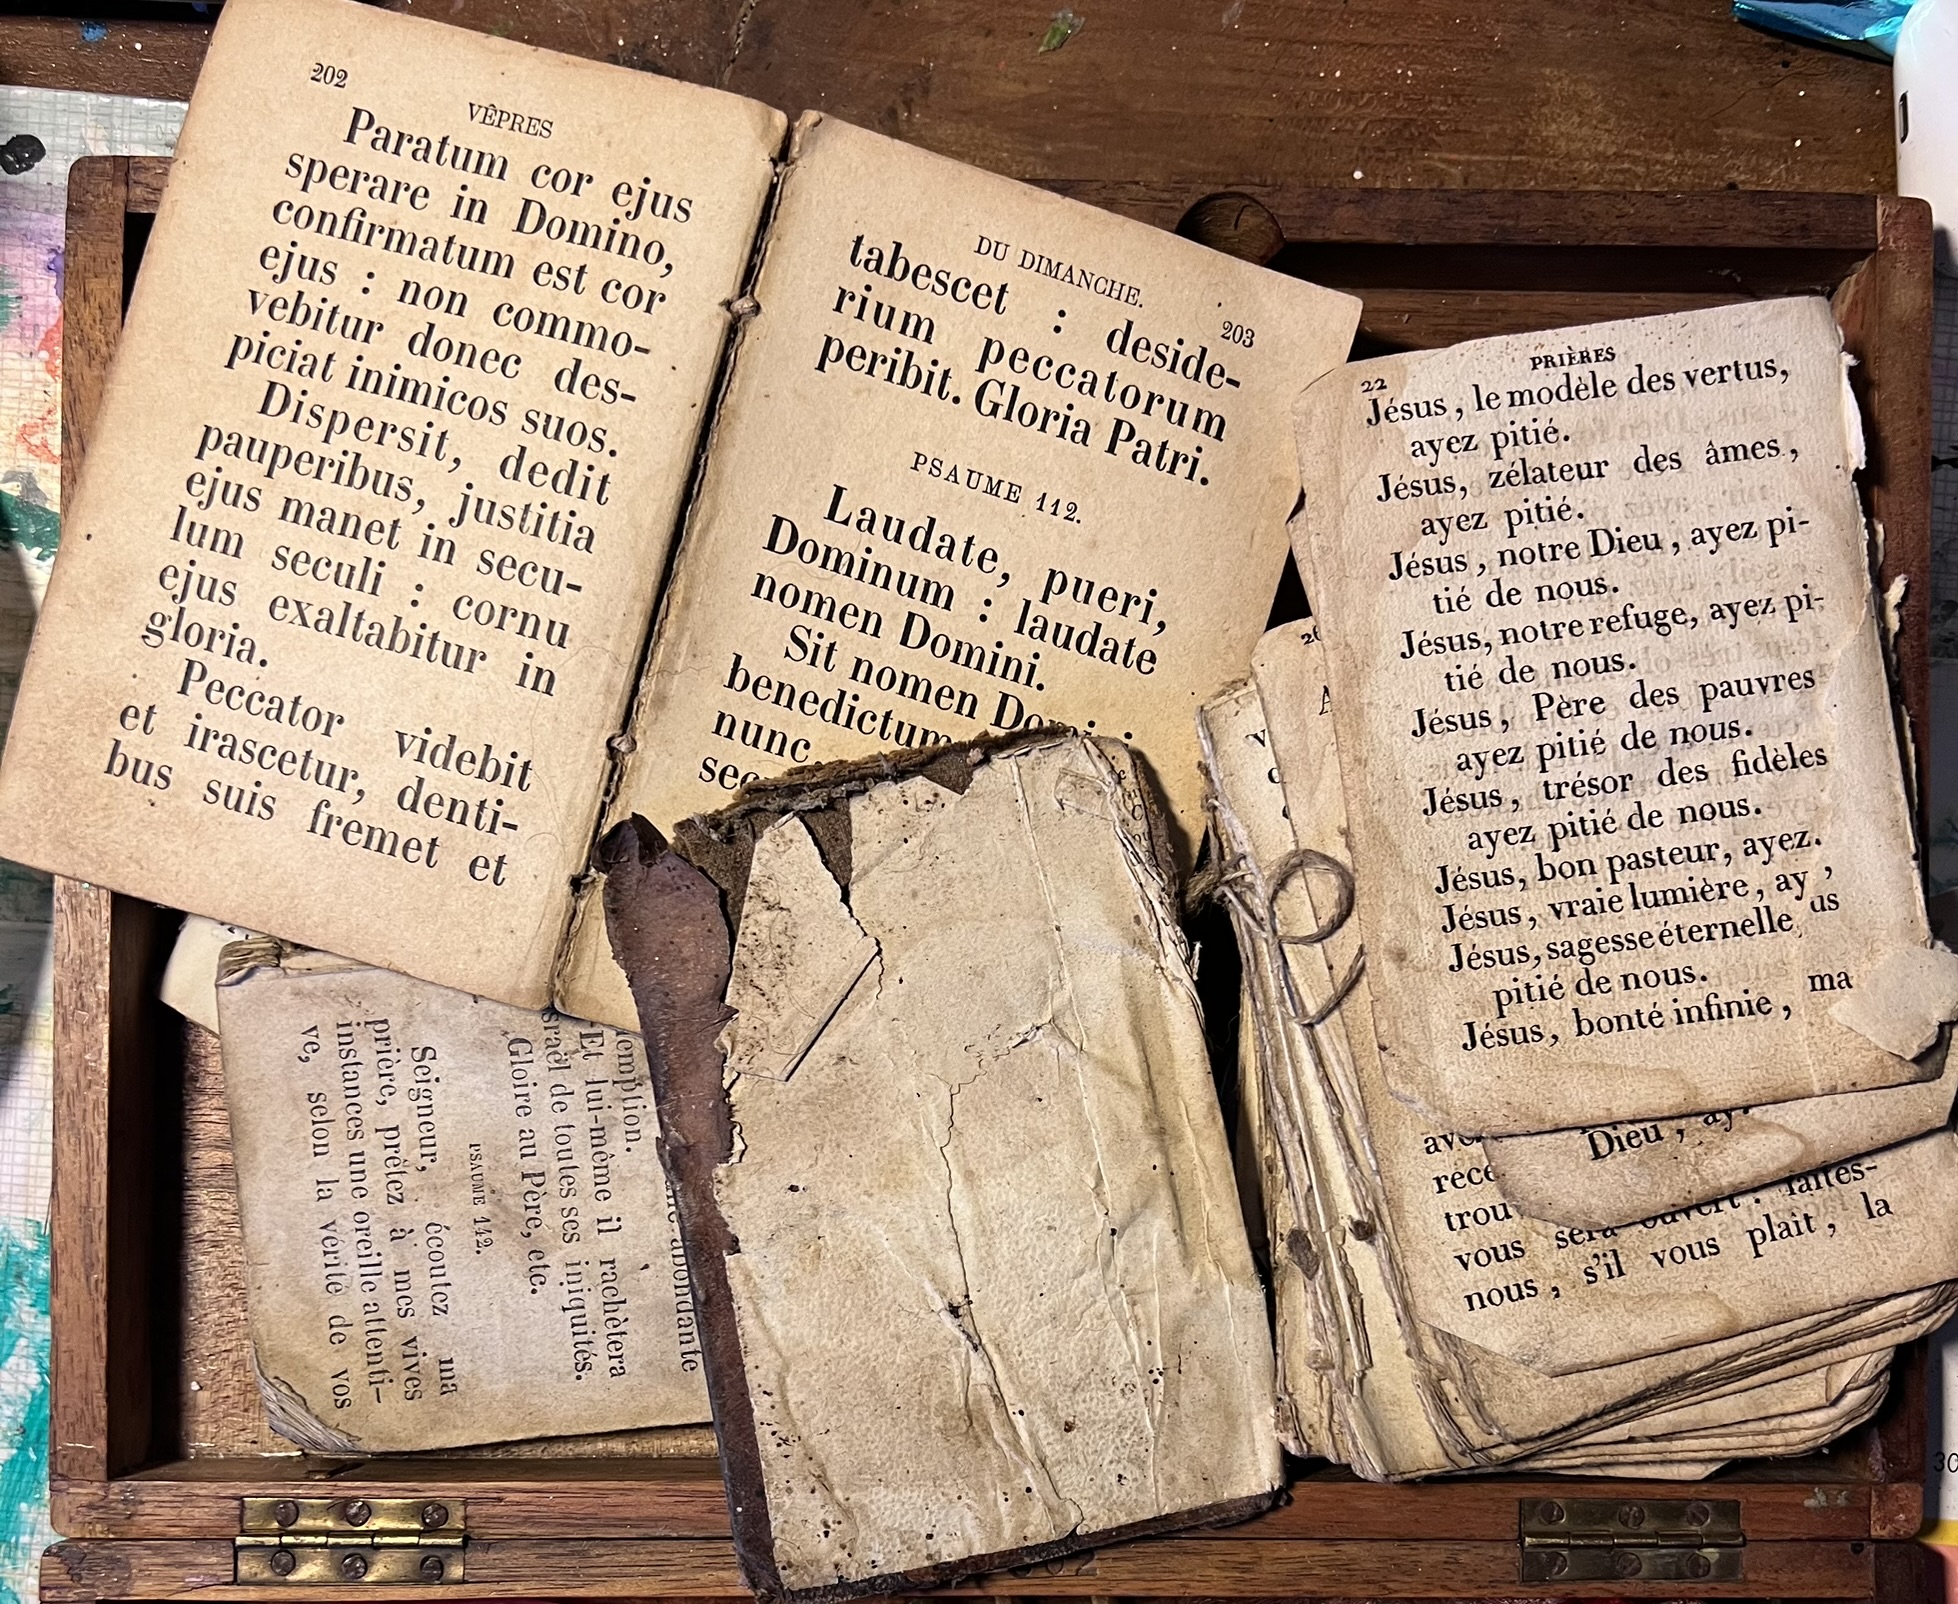 202
VÊPRES
Paratum cor ejus
sperare in Domino,
confirmatum est cor
ejus : non commo-
vebitur donec des-
piciat inimicos suos.
Dispersit, dedit
pauperibus, justitia
ejus manet in secu-
lum seculi : cornu
ejus exaltabitur in
gloria.
Peccator videbit
et irascetur, denti-
bus suis fremet et
DU DIMANCHE.
203
tabescet : deside-
rium peccatorum
peribit. Gloria Patri.
PSAUME 112.
Laudate, pueri,
Dominum : laudate
nomen Domini.
Sit nomen Domini
benedictum
nunc
PRIÈRES
22
Jésus, le modèle des vertus,
ayez pitié.
Jésus, zélateur des âmes,
ayez pitié.
Jésus, notre Dieu, ayez pi-
tié de nous.
Jésus, notre refuge, ayez pi-
tié de nous.
Jésus, Père des pauvres
ayez pitié de nous.
Jésus, trésor des fidèles
ayez pitié de nous.
Jésus, bon pasteur, ayez.
Jésus, vraie lumière, ay
Jésus, sagesse éternelle
pitié de nous.
Jésus, bonté infinie, ma
Dieu, ay
trou
vous sera ouvert : faites-
nous, s'il vous plaît, la
abondante
emption.
Et lui-même il rachètera
sraël de toutes ses iniquités.
Gloire au Père, etc.
PSAUME 142.
Seigneur, écoutez ma
prière, prêtez à mes vives
instances une oreille attenti-
ve, selon la vérité de vos
30